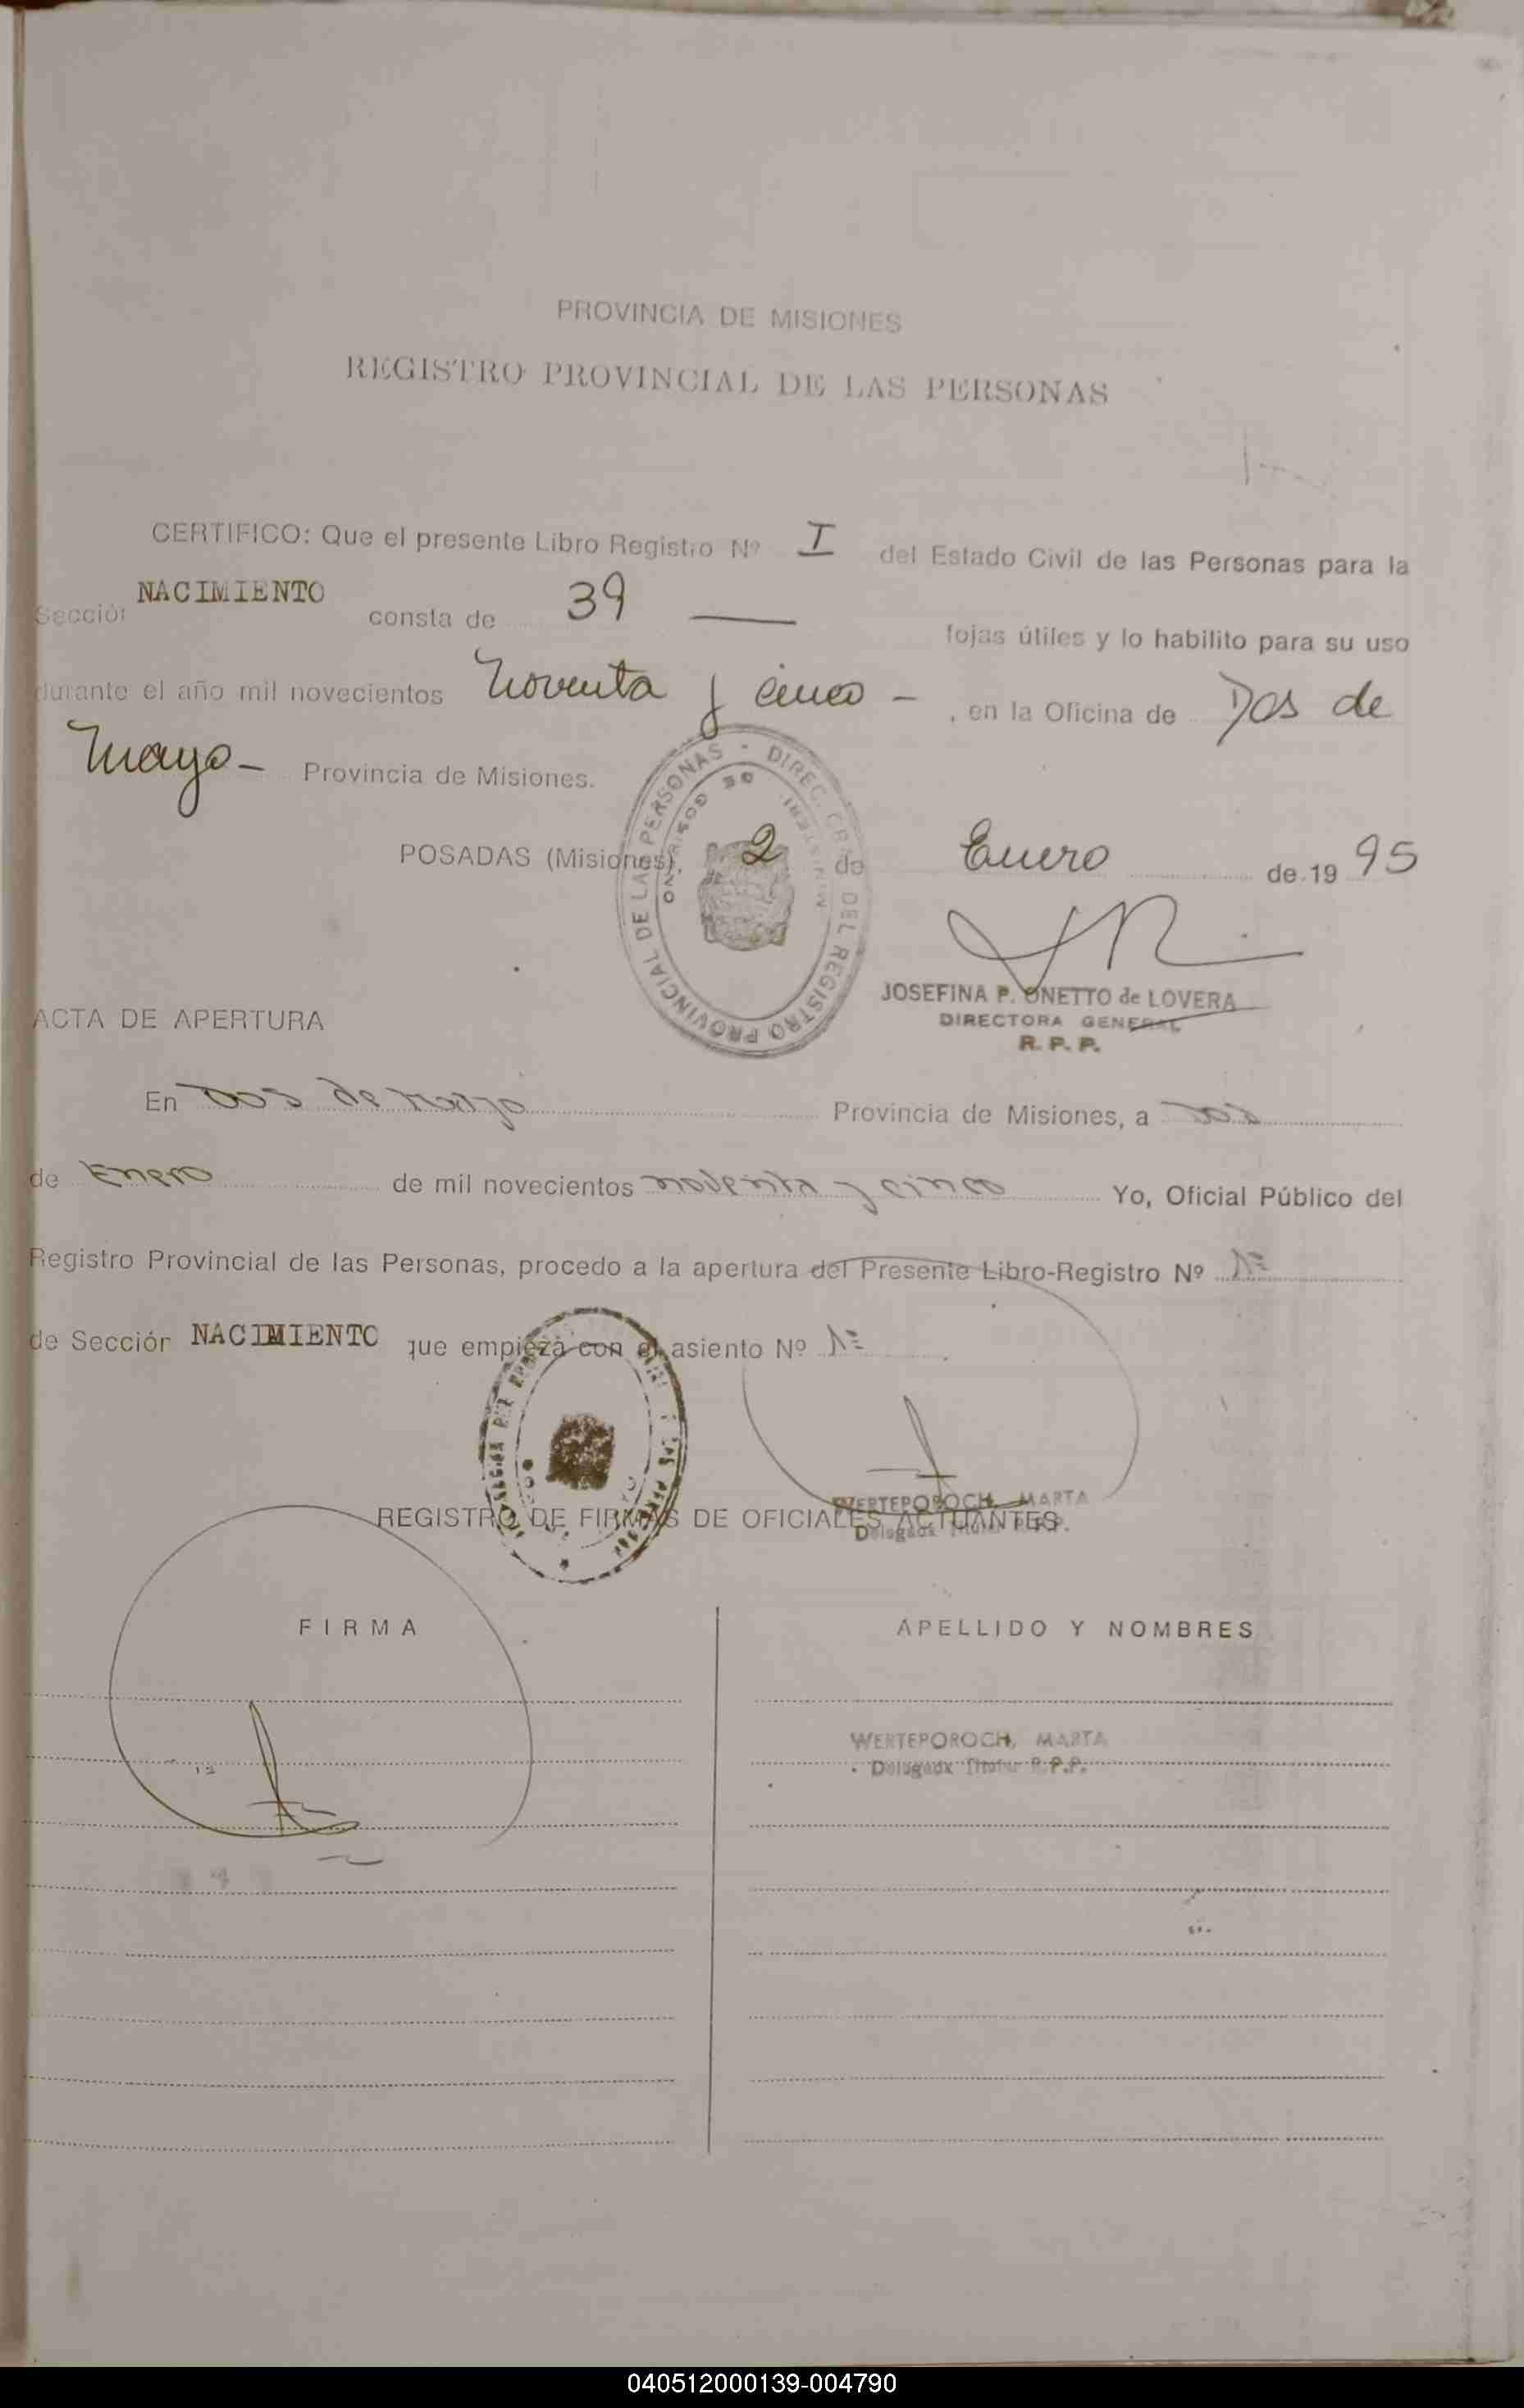 PROVINCIA DE MISIONES
REGISTRO PROVINCIAL DE LAS PERSONAS
CERTIFICO: Que el presente Libro Registro Nº I del Estado Civil de las Personas para la
Sección NACIMIENTO consta de 39 — fojas útiles y lo habilito para su uso
durante el año mil novecientos Noventa y cinco - , en la Oficina de Dos de
Mayo - Provincia de Misiones.
POSADAS (Misiones), 2 de Enero de 19 95
DIREC. GRAL. DEL REGISTRO PROVINCIAL DE LAS PERSONAS
JOSEFINA P. ONETTO de LOVERA
DIRECTORA GENERAL
R. P. P.
ACTA DE APERTURA
En Dos de Mayo Provincia de Misiones, a dos
de Enero de mil novecientos noventa y cinco Yo, Oficial Público del
Registro Provincial de las Personas, procedo a la apertura del Presente Libro-Registro Nº 1º
de Sección NACIMIENTO que empieza con el asiento Nº 1º
WERTEPOROCH, MARTA
Delegada Titular R.P.P.
REGISTRO DE FIRMAS DE OFICIALES ACTUANTES
FIRMA APELLIDO Y NOMBRES
WERTEPOROCH, MARTA
Delegada Titular R.P.P.
040512000139-004790